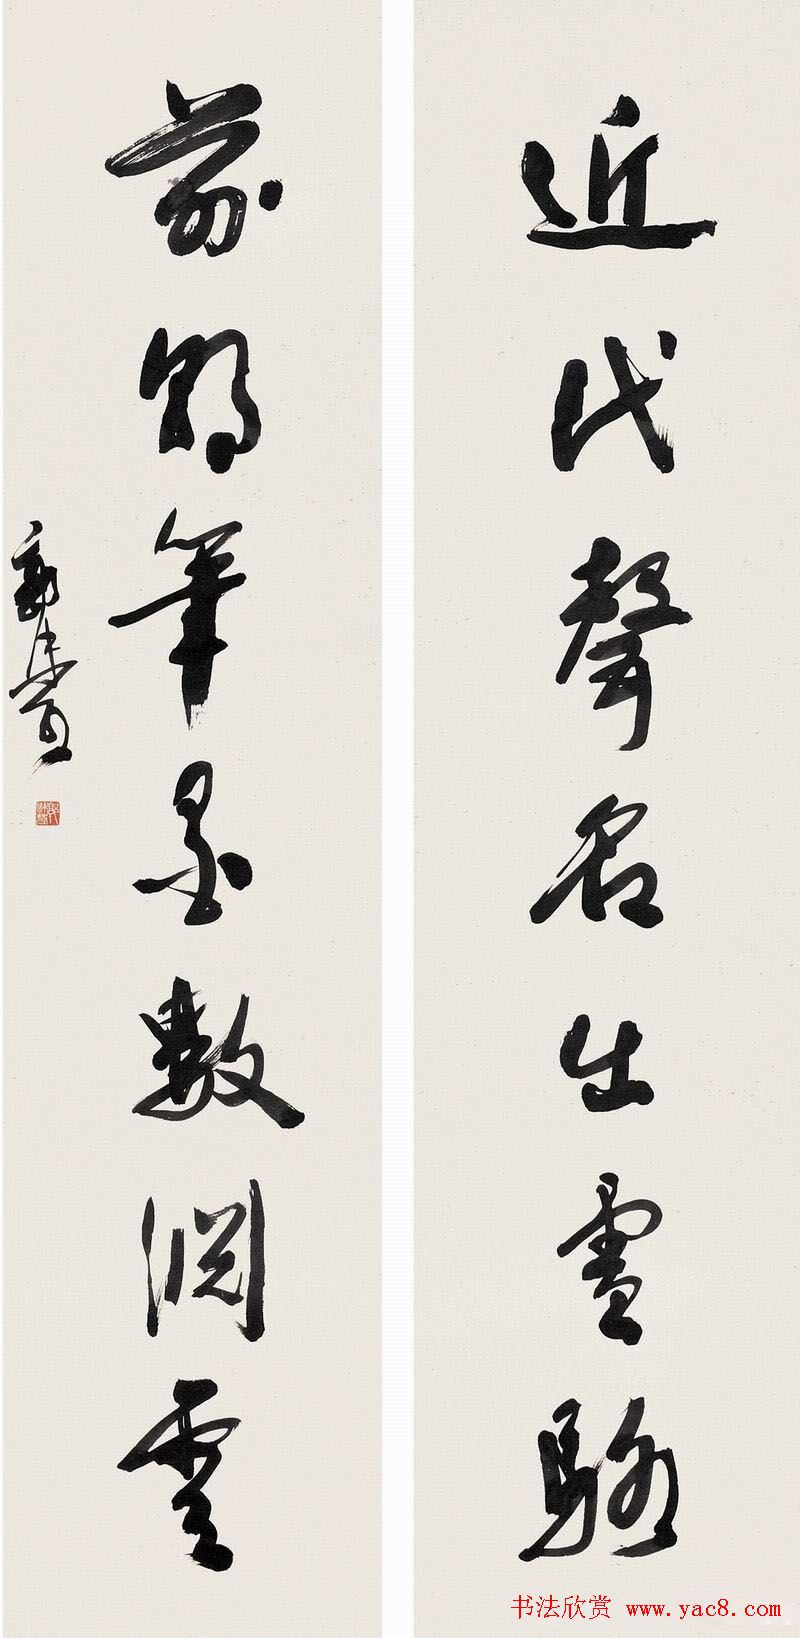 近代聲名出盧駱
前朝筆墨數淵雲
书法欣赏 www.yac8.com